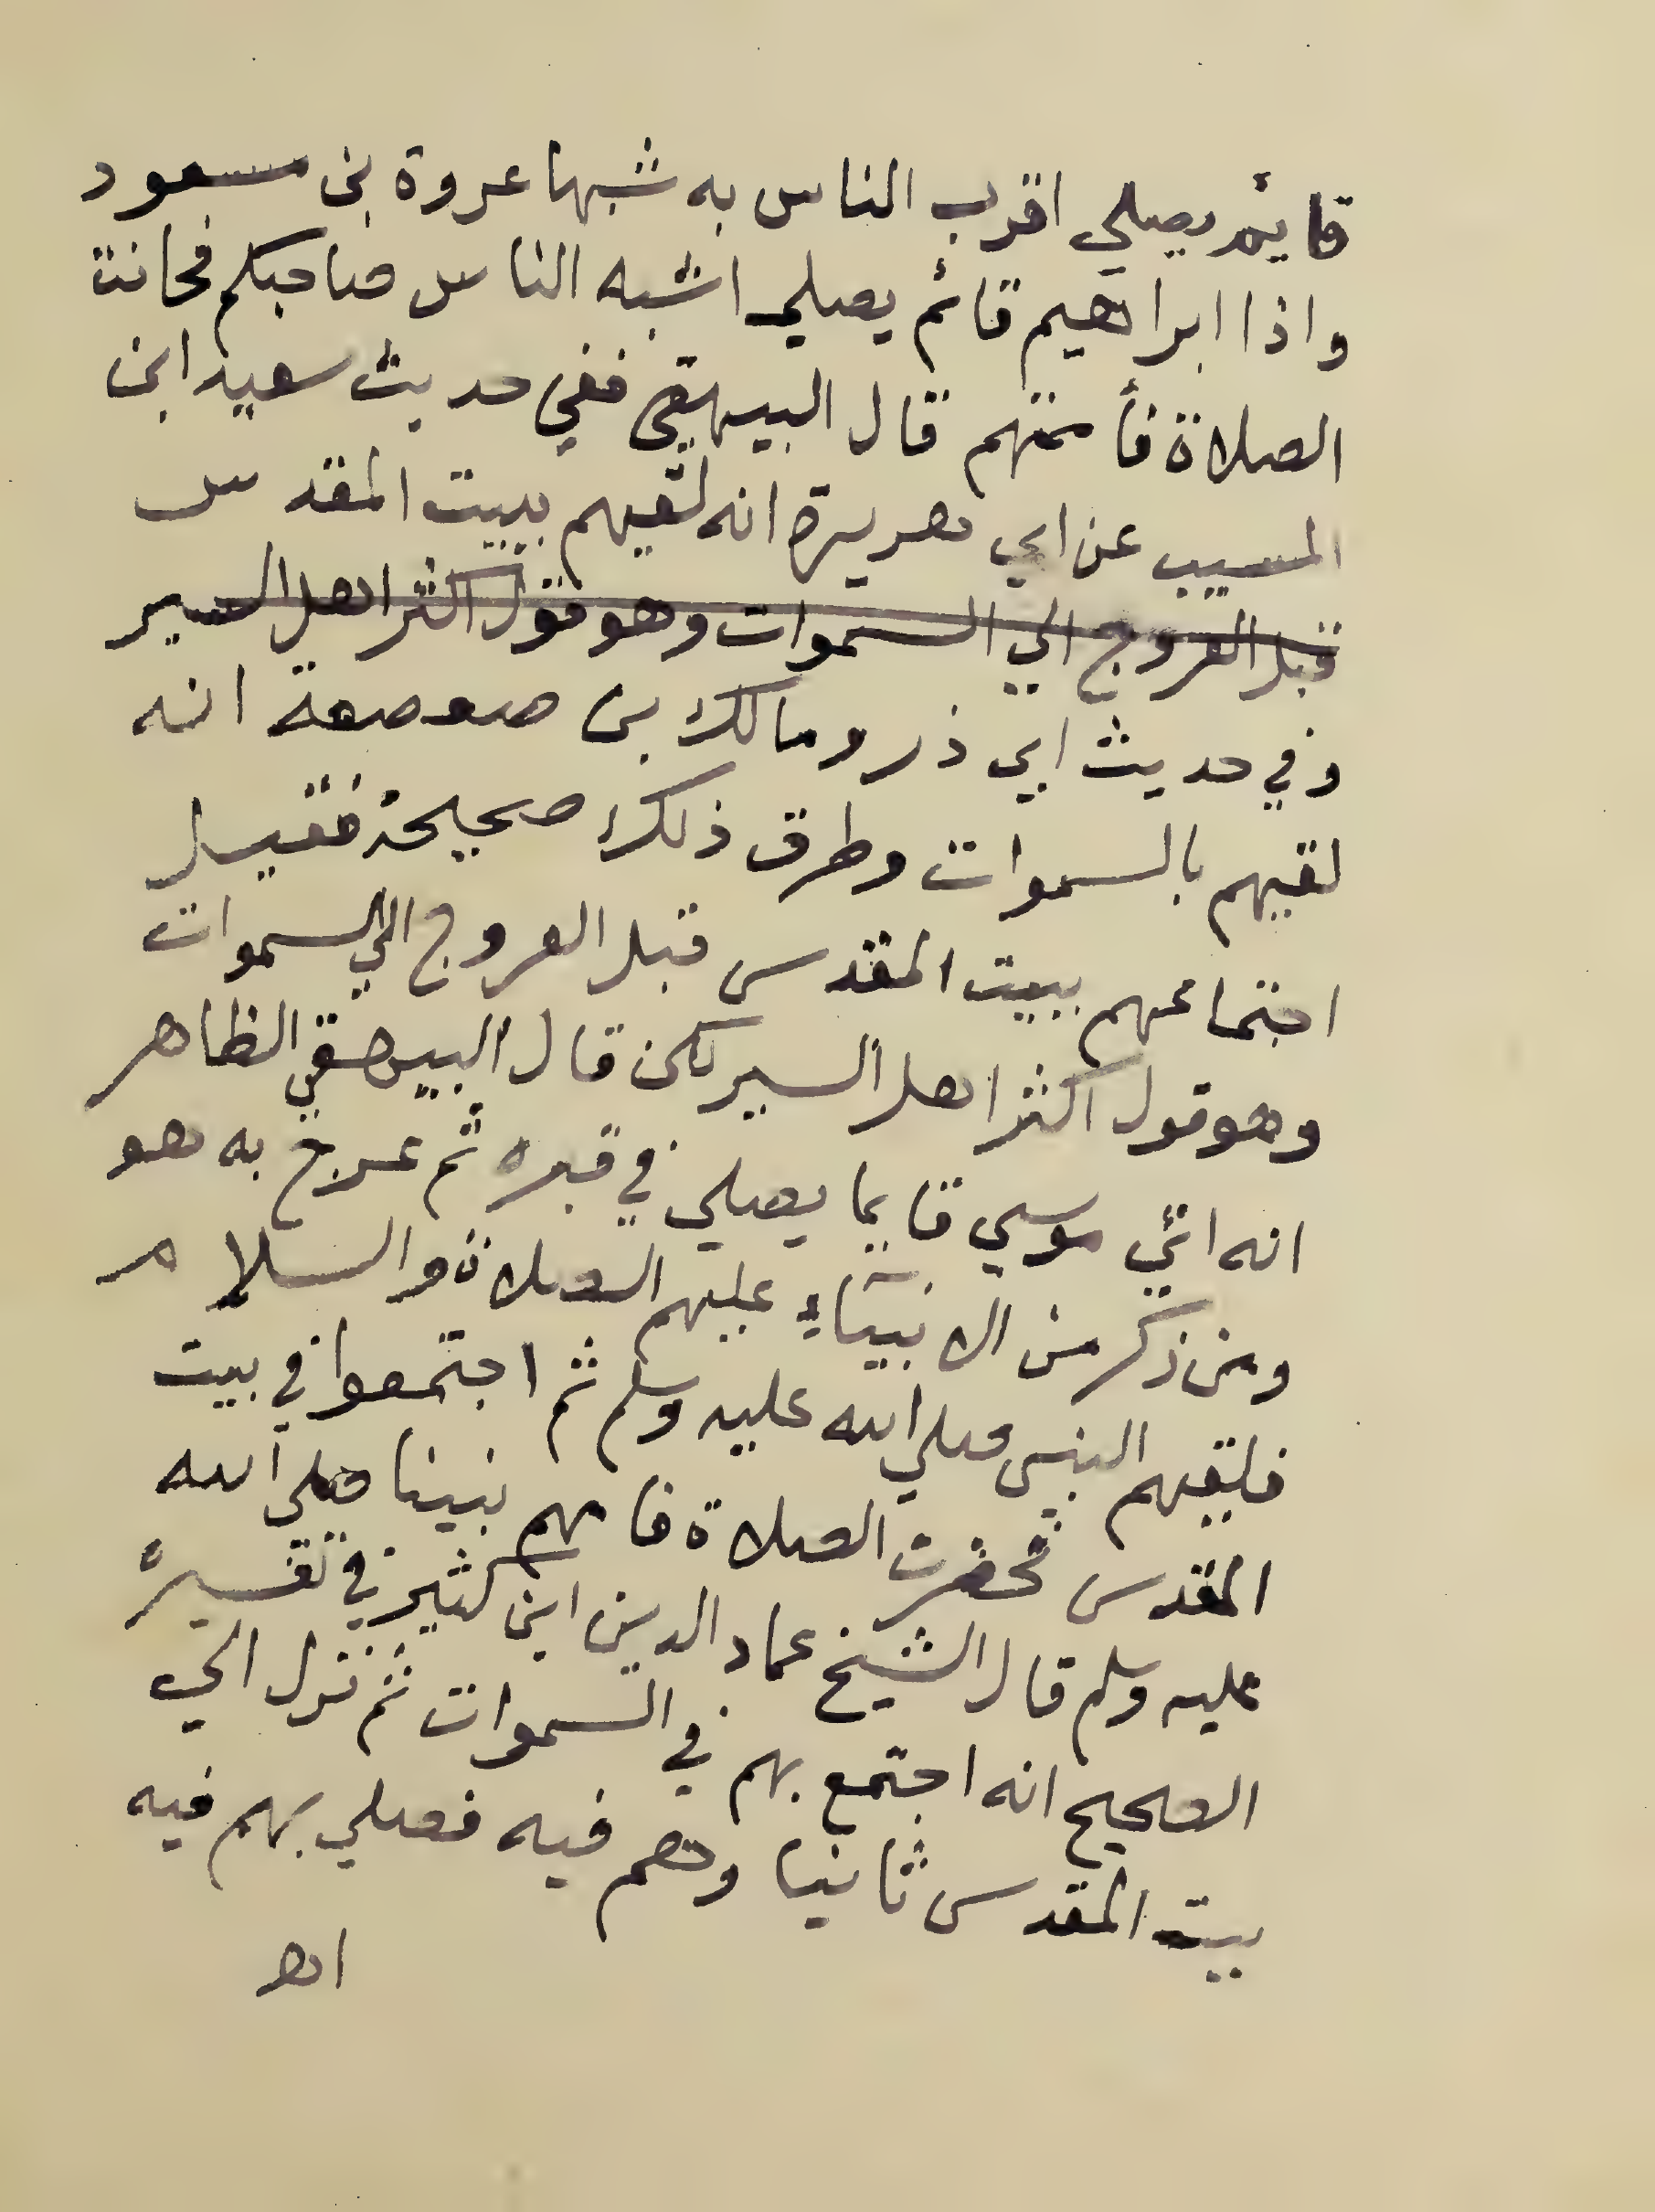 قايئم يصلي اقرب الناس به شبها عروة بن مسعود
واذا ابراهيم قائم يصلي اشبه الناس صاحبكم فحانت
الصلاة فأممتهم قال البيهقي ففي حديث سعيد ابن
المسيب عن ابي هريرة انه لقيهم ببيت المقدس
قبل العروج الي السموات وهو قول اكثر اهل السير
وفي حديث ابي ذر ومالك بن صعصعة انه
لقيهم بالسموات وطرق ذلك صحيحة فقيل
اجتماعهم ببيت المقدس قبل العروج الي السموات
وهو قول اكثر اهل السير لكن قال البيهقي الظاهر
انه اتي موسي قايما يصلي في قبره ثم عرج به هو
ومن ذكر من الانبيآء عليهم الصلاة والسلام
فلقيهم النبي صلي الله عليه وسلم ثم اجتمعوا في بيت
المقدس فحضرت الصلاة فامهم نبينا صلي الله
عليه وسلم قال الشيخ عماد الدين ابن كثير في تفسيره
الصحيح انه اجتمع بهم في السموات ثم نزل الي
بيت المقدس ثانيا وهم فيه فصلي بهم فيه
اه